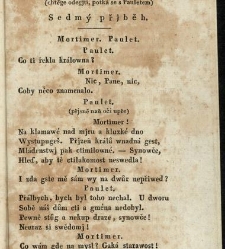 (chtěge odegjti, potká se s Pauletem)
Sedmý přjběh.
Mortimer. Paulet.
Paulet.
Co ti řekla králowna?
Mortimer.
Nic, Pane, nic,
Coby něco znamenalo.
Paulet.
(přjsně naň oči upře)
Mortimer!
Na klamawé nad mjru a hluzké dno
Wystupugeš. Přjzeň králů wnadná gest,
Mládenstwj pak ctimilowné. — Synowče,
Hleď, aby tě ctilakomost neswedla!
Mortimer.
I zda gste mě sám wy na dwůr nepřiwed?
Paulet.
Přálbych, bych byl toho nechal. U dworu
Sobě náš dům cti a gměna nedobyl.
Pewně stůg a nekup draze, synowče!
Neuraz si swědomj!
Mortimer.
Co wám gde na mysl? Gaká starawost!